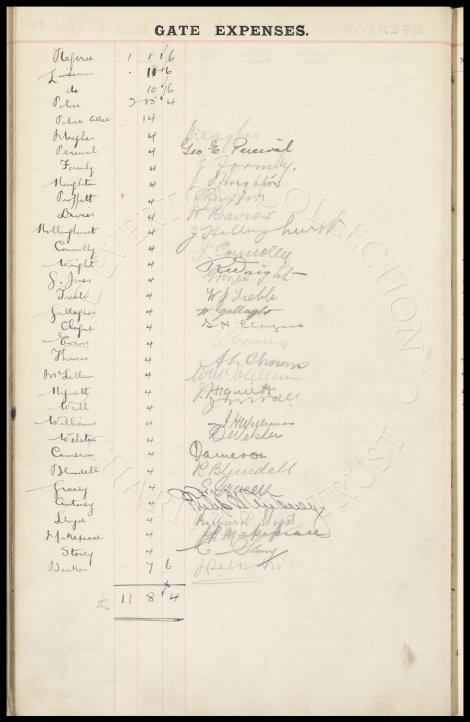 GATE EXPENSES.
Referee 1 1 6
Linesmen 10 6
do 10 6
Police 2 15 4
Police 14
4
Percival 4 Geo. E. Percival
Formby 4 J Formby.
Houghton 4 J Houghton
Proffitt 4
Davies 4 W Davies
Hollinghurst 4 J Hollinghurst
Connolly 4 J Connolly
Wright 4
G. Jones 4
Treble 4 W J Treble
Gallagher 4 W Gallagher
4
Evans 4 W Evans
Thomas 4
McLellan 4 W McLellan
4
Wall 4
Williams 4
Webster 4 Webster
Cameron 4 Cameron
Blundell 4 R Blundell
Gracey 4 Gracey
4
Lloyd 4
Makepeace 4 Makepeace
Storey 4 Storey
Barker 7 6
11 8 4
EVERTON COLLECTION
CHARITABLE TRUST